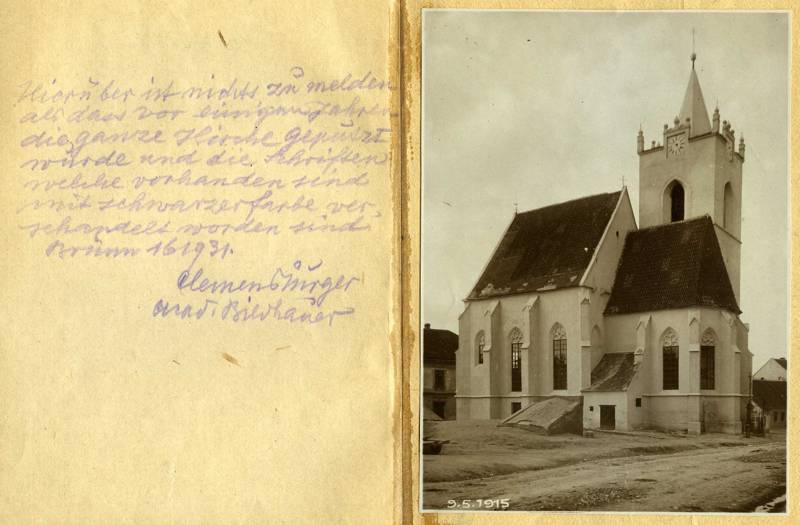 Hierüber ist nichts zu melden
als dass vor einigen Jahren
die ganze Kirche geputzt
wurde und die Schriften
welche vorhanden sind
mit schwarzer farbe ver-
schandelt worden sind
Brünn 16 1931.
Clemens Burger
acad. Bildhauer
9.5.1915